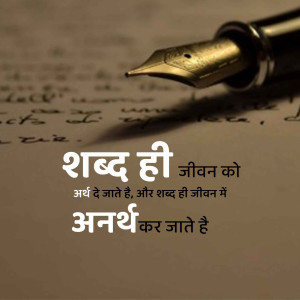 शब्द ही जीवन को
अर्थ दे जाते है, और शब्द ही जीवन में
अनर्थ कर जाते है